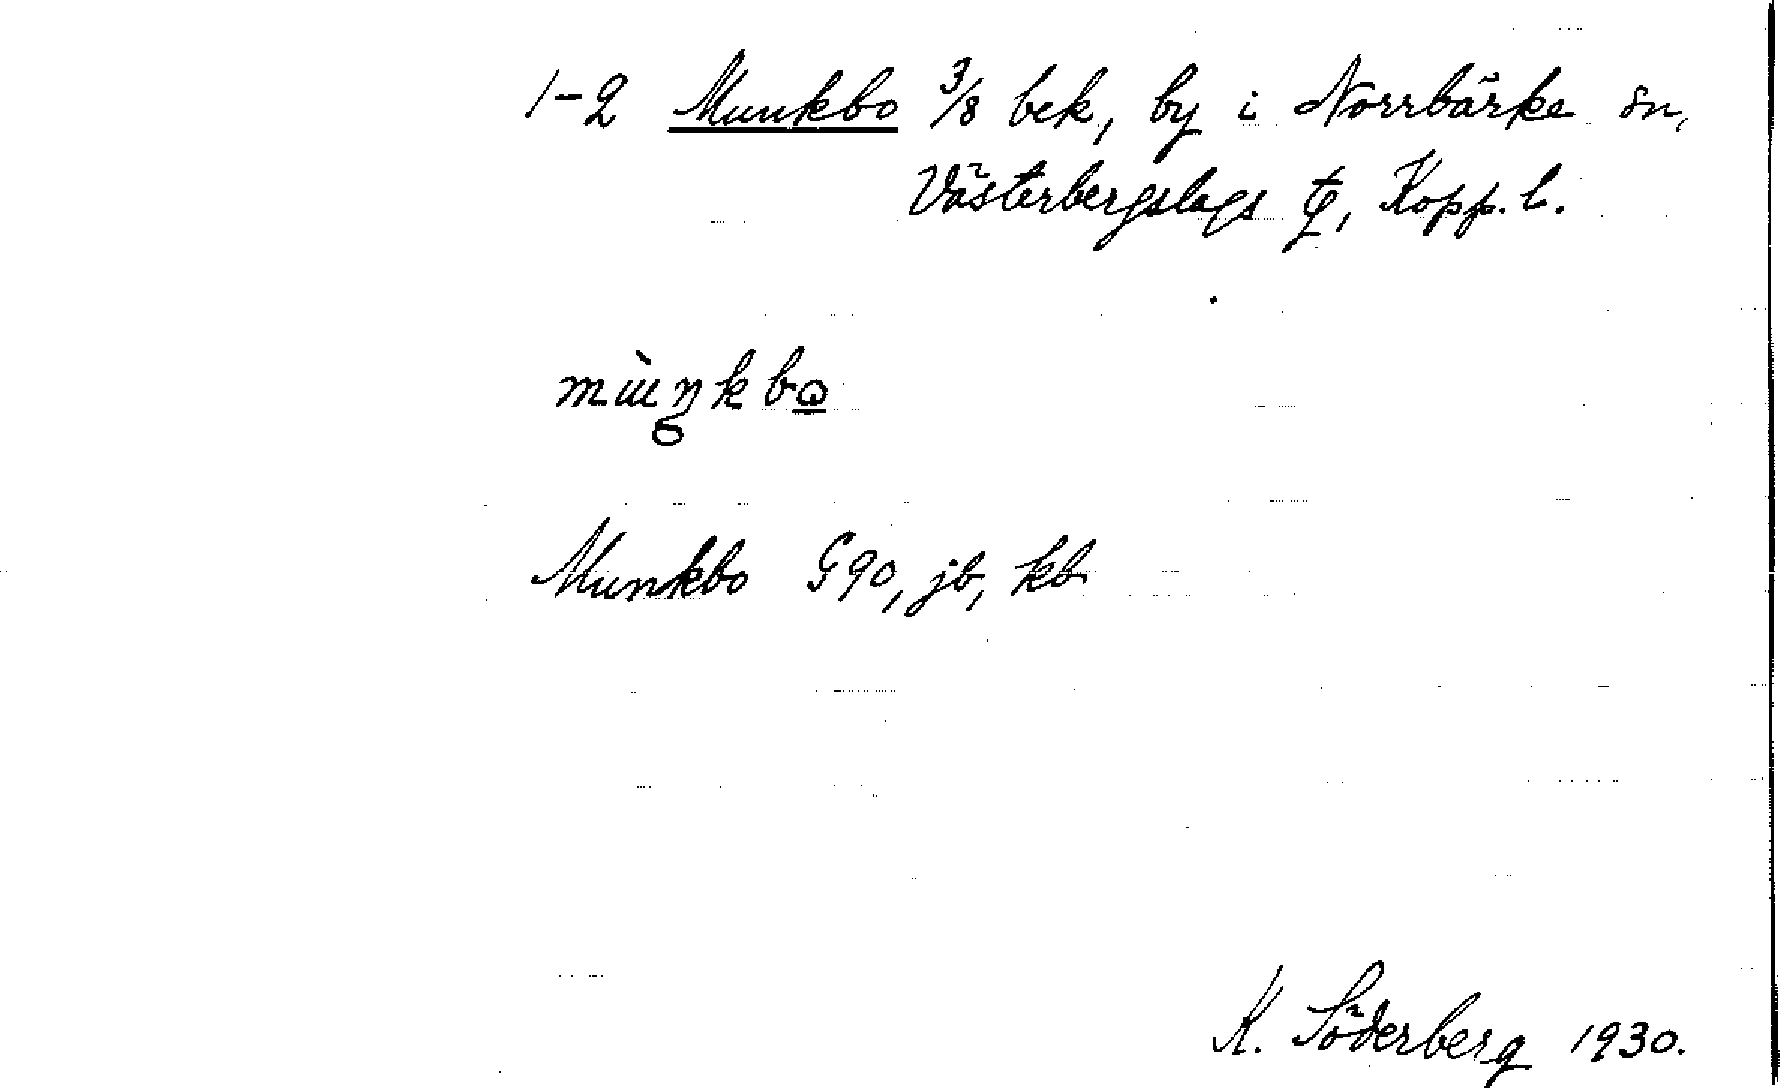 1-2 Munkbo 3/8 bek, by i Norrbärke sn,
Västerbergslags tg, Kopp. l.
mùŋkbo
Munkbo G90, jb, kb
K. Söderberg 1930.